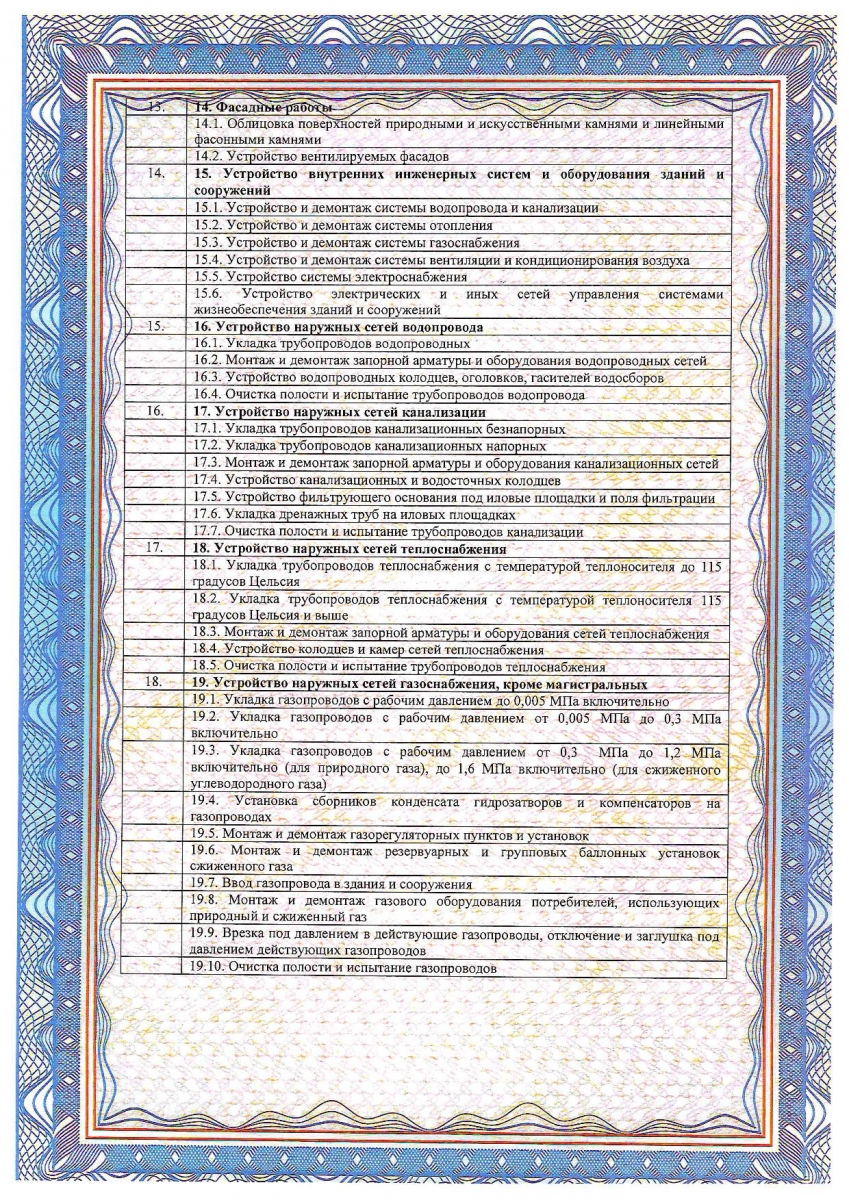 13. 14. Фасадные работы
14.1. Облицовка поверхностей природными и искусственными камнями и линейными
фасонными камнями
14.2. Устройство вентилируемых фасадов
14. 15. Устройство внутренних инженерных систем и оборудования зданий и
сооружений
15.1. Устройство и демонтаж системы водопровода и канализации
15.2. Устройство и демонтаж системы отопления
15.3. Устройство и демонтаж системы газоснабжения
15.4. Устройство и демонтаж системы вентиляции и кондиционирования воздуха
15.5. Устройство системы электроснабжения
15.6. Устройство электрических и иных сетей управления системами
жизнеобеспечения зданий и сооружений
15. 16. Устройство наружных сетей водопровода
16.1. Укладка трубопроводов водопроводных
16.2. Монтаж и демонтаж запорной арматуры и оборудования водопроводных сетей
16.3. Устройство водопроводных колодцев, оголовков, гасителей водосборов
16.4. Очистка полости и испытание трубопроводов водопровода
16. 17. Устройство наружных сетей канализации
17.1. Укладка трубопроводов канализационных безнапорных
17.2. Укладка трубопроводов канализационных напорных
17.3. Монтаж и демонтаж запорной арматуры и оборудования канализационных сетей
17.4. Устройство канализационных и водосточных колодцев
17.5. Устройство фильтрующего основания под иловые площадки и поля фильтрации
17.6. Укладка дренажных труб на иловых площадках
17.7. Очистка полости и испытание трубопроводов канализации
17. 18. Устройство наружных сетей теплоснабжения
18.1. Укладка трубопроводов теплоснабжения с температурой теплоносителя до 115
градусов Цельсия
18.2. Укладка трубопроводов теплоснабжения с температурой теплоносителя 115
градусов Цельсия и выше
18.3. Монтаж и демонтаж запорной арматуры и оборудования сетей теплоснабжения
18.4. Устройство колодцев и камер сетей теплоснабжения
18.5. Очистка полости и испытание трубопроводов теплоснабжения
18. 19. Устройство наружных сетей газоснабжения, кроме магистральных
19.1. Укладка газопроводов с рабочим давлением до 0,005 МПа включительно
19.2. Укладка газопроводов с рабочим давлением от 0,005 МПа до 0,3 МПа
включительно
19.3. Укладка газопроводов с рабочим давлением от 0,3 МПа до 1,2 МПа
включительно (для природного газа), до 1,6 МПа включительно (для сжиженного
углеводородного газа)
19.4. Установка сборников конденсата гидрозатворов и компенсаторов на
газопроводах
19.5. Монтаж и демонтаж газорегуляторных пунктов и установок
19.6. Монтаж и демонтаж резервуарных и групповых баллонных установок
сжиженного газа
19.7. Ввод газопровода в здания и сооружения
19.8. Монтаж и демонтаж газового оборудования потребителей, использующих
природный и сжиженный газ
19.9. Врезка под давлением в действующие газопроводы, отключение и заглушка под
давлением действующих газопроводов
19.10. Очистка полости и испытание газопроводов